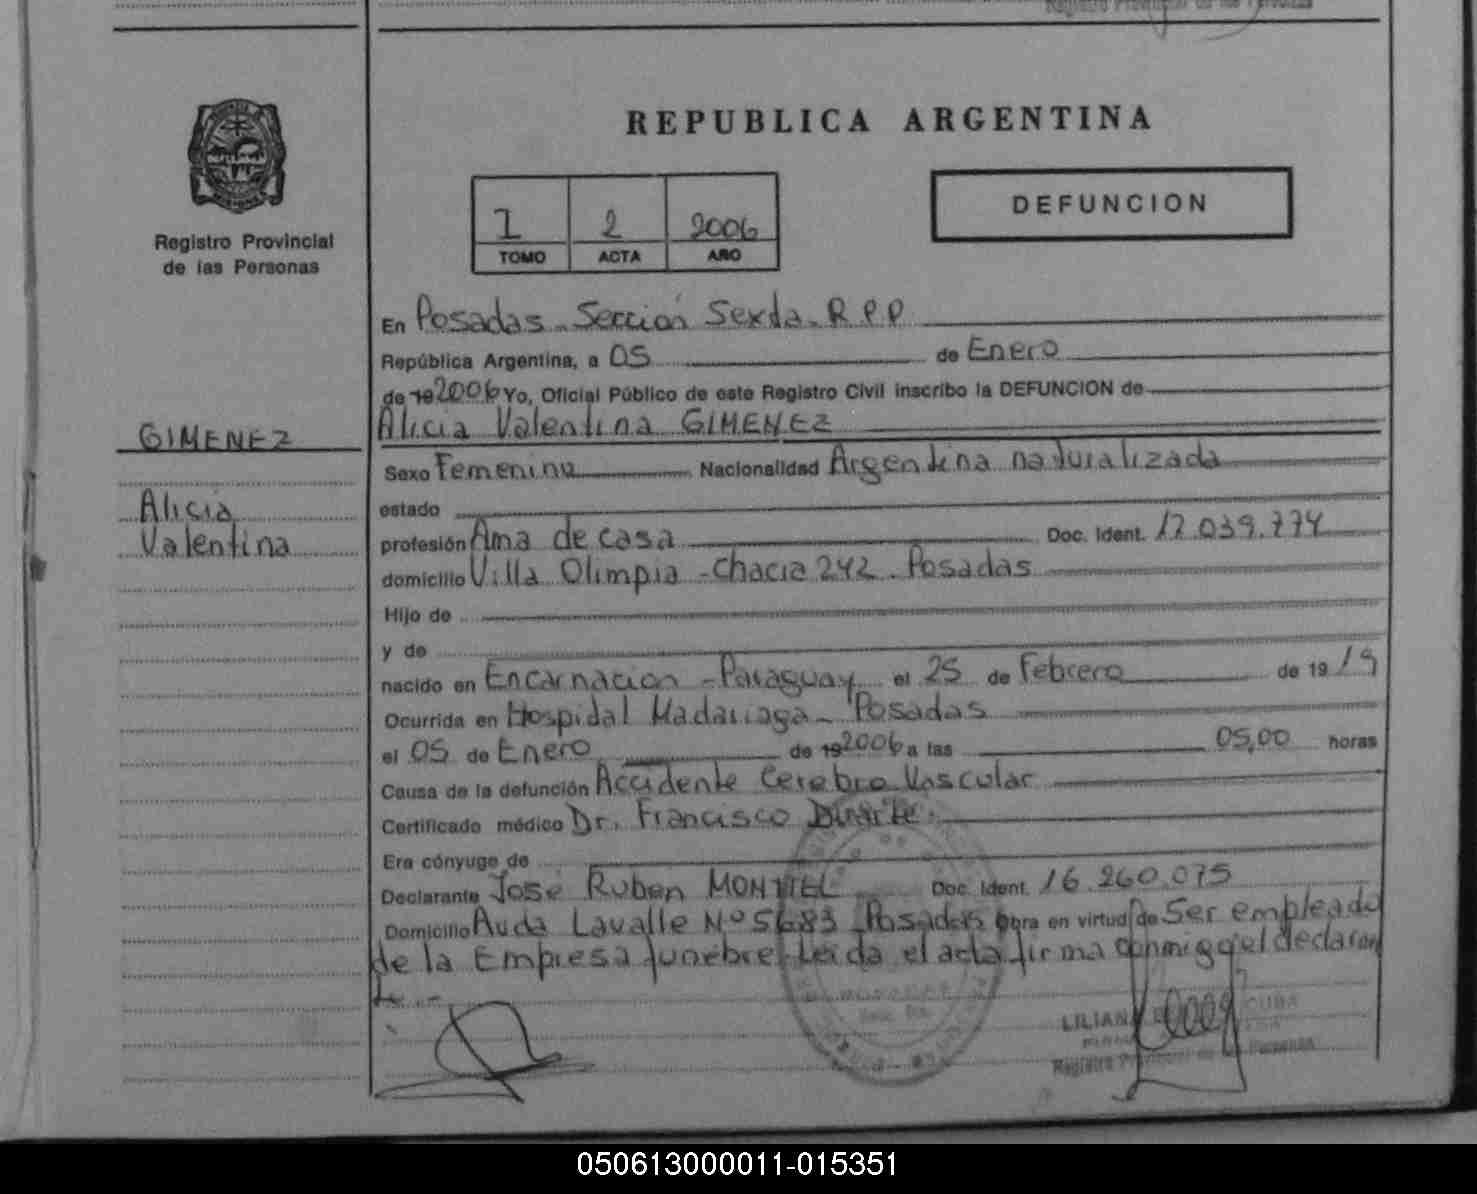 Registro Provincial de las Personas
REPUBLICA ARGENTINA
Registro Provincial
de las Personas
I 2 2006
TOMO ACTA AÑO
DEFUNCION
En Posadas - Sección Sexta - R.P.P.
República Argentina, a 05 de Enero
de 19 2006 Yo, Oficial Público de este Registro Civil inscribo la DEFUNCION de
Alicia Valentina GIMENEZ
GIMENEZ
Alicia
Valentina
Sexo Femenino Nacionalidad Argentina naturalizada
estado
profesión Ama de casa Doc. Ident. 17.039.774
domicilio Villa Olimpia - Chacra 242 - Posadas
Hijo de
y de
nacido en Encarnación - Paraguay el 25 de Febrero de 19 19
Ocurrida en Hospital Madariaga - Posadas
el 05 de Enero de 19 2006 a las 05,00 horas
Causa de la defunción Accidente Cerebro Vascular
Certificado médico Dr. Francisco Duarte.
Era cónyuge de
Declarante José Ruben MONTIEL Doc. Ident. 16.260.075
Domicilio Avda Lavalle Nº 5683 Posadas obra en virtud de Ser empleado
de la Empresa funebre. Leida el acta firma conmigo el declaran
te.-
LILIANA CUBA
Registro Provincial de las Personas
050613000011-015351